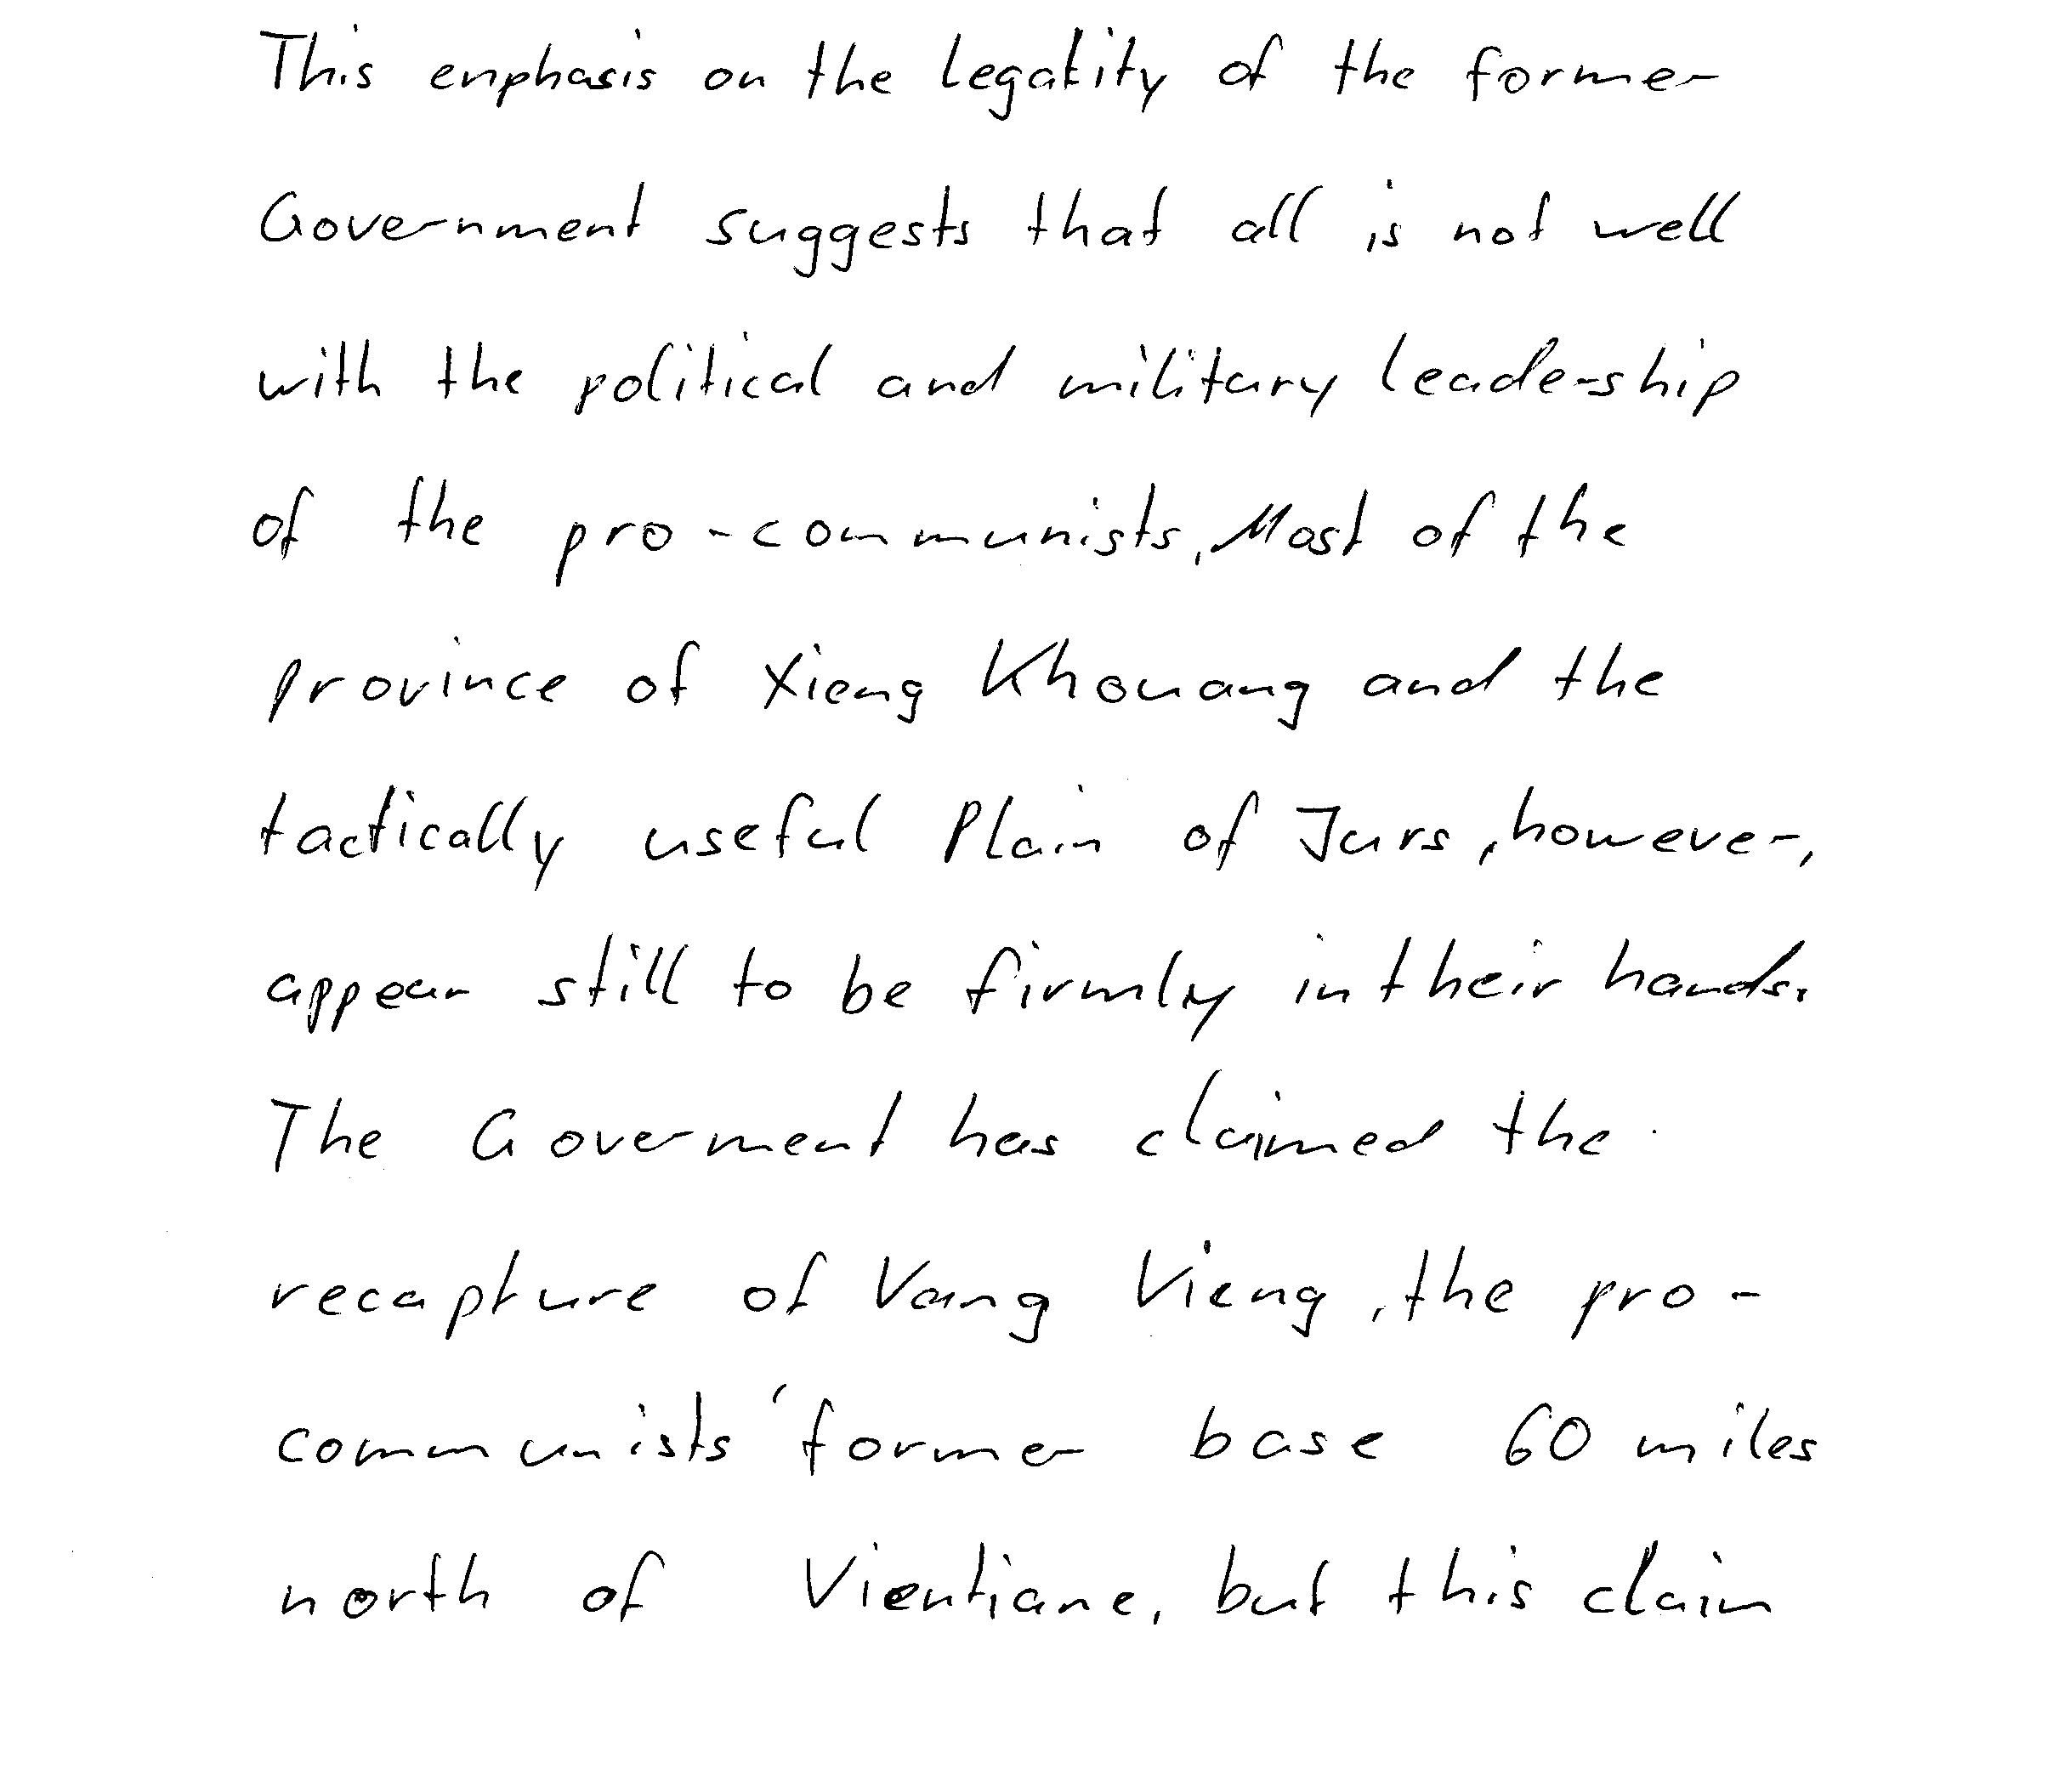 This emphasis on the legality of the former
Government suggests that all is not well
with the political and military leadership
of the pro-communists. Most of the
province of Xieng Khouang and the
tactically useful Plain of Jars, however,
appear still to be firmly in their hands.
The Government has claimed the
recapture of Vang Vieng, the pro-
communists' former base 60 miles
north of Vientiane, but this claim